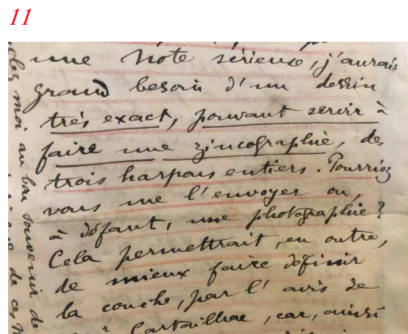 11
une note sérieuse, j'aurais
grand besoin d'un dessin
très exact, pouvant servir à
faire une zincographie, des
trois harpons entiers. Pourriez
vous me l'envoyer ou,
à défaut, une photographie?
Cela permettrait, en outre,
de mieux faire définir
la couche, par l'avis de
Cartailhac, car, ainsi
moi au bon souvenir de